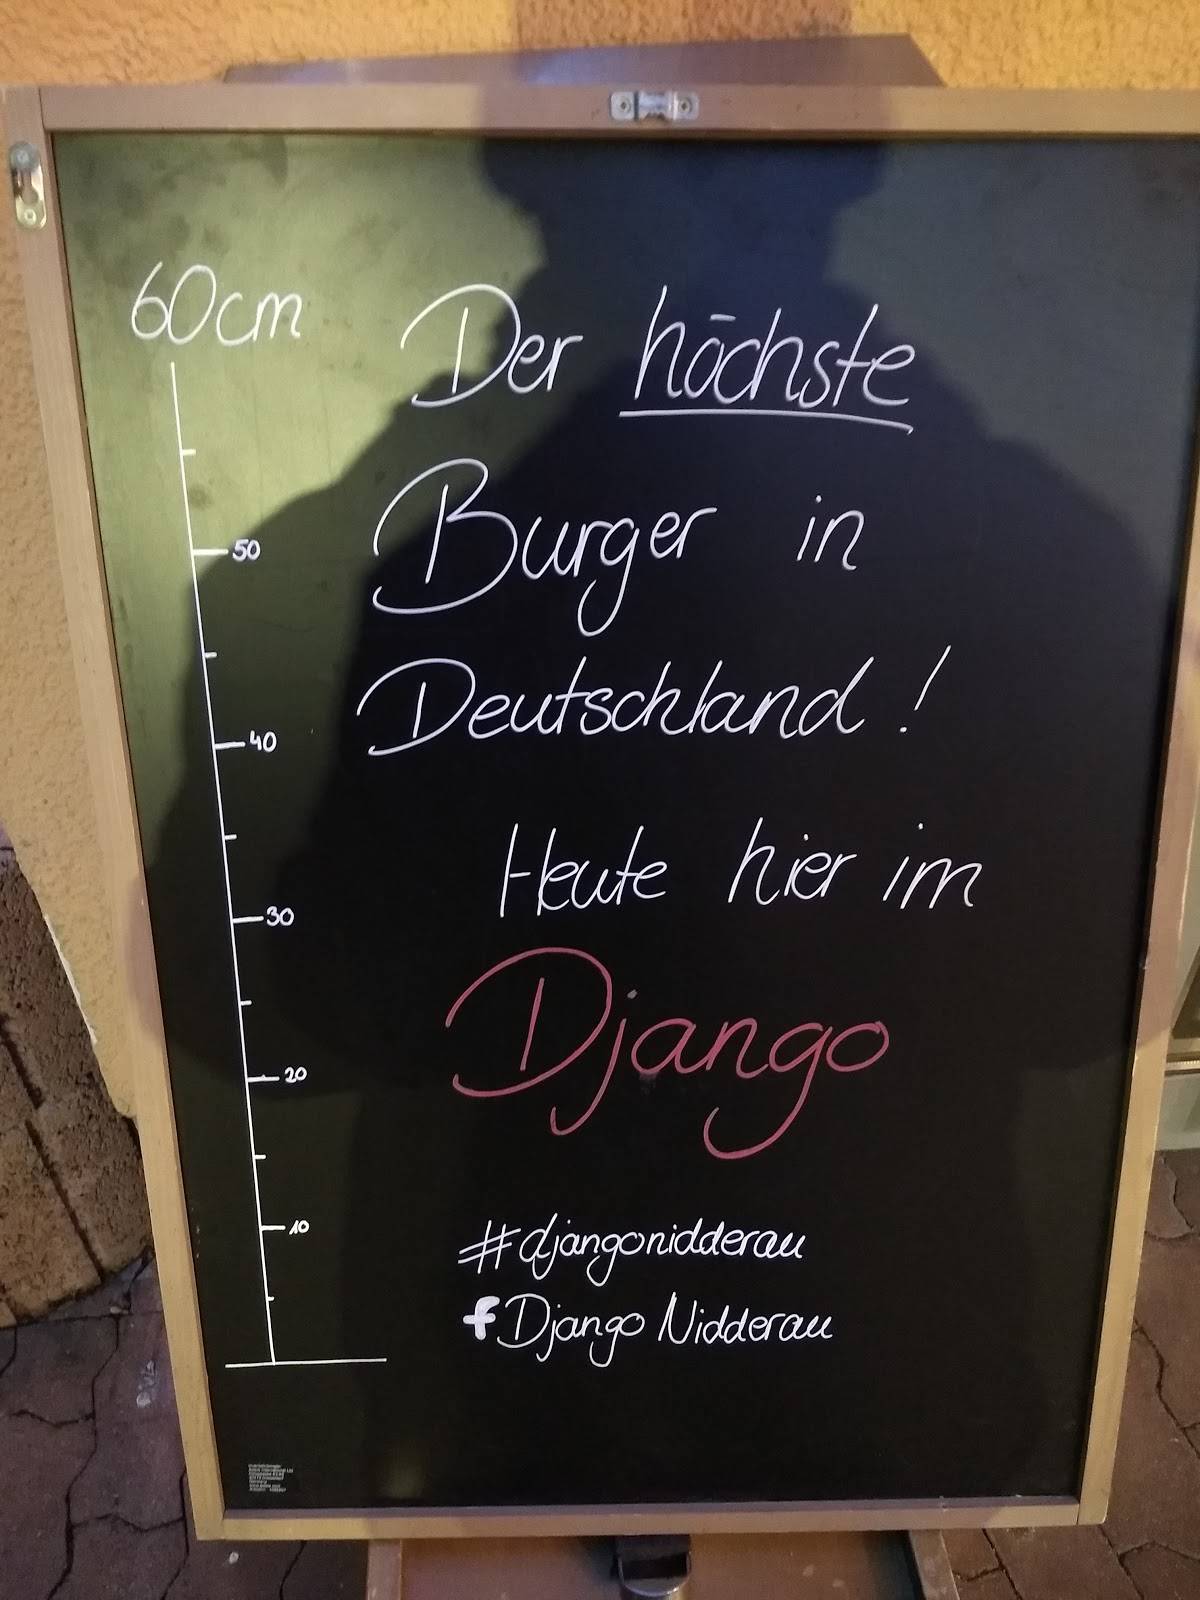 60cm
Der höchste
Burger in
Deutschland!
Heute hier im
Django
#djangonidderau
f Django Nidderau
50
40
30
20
10